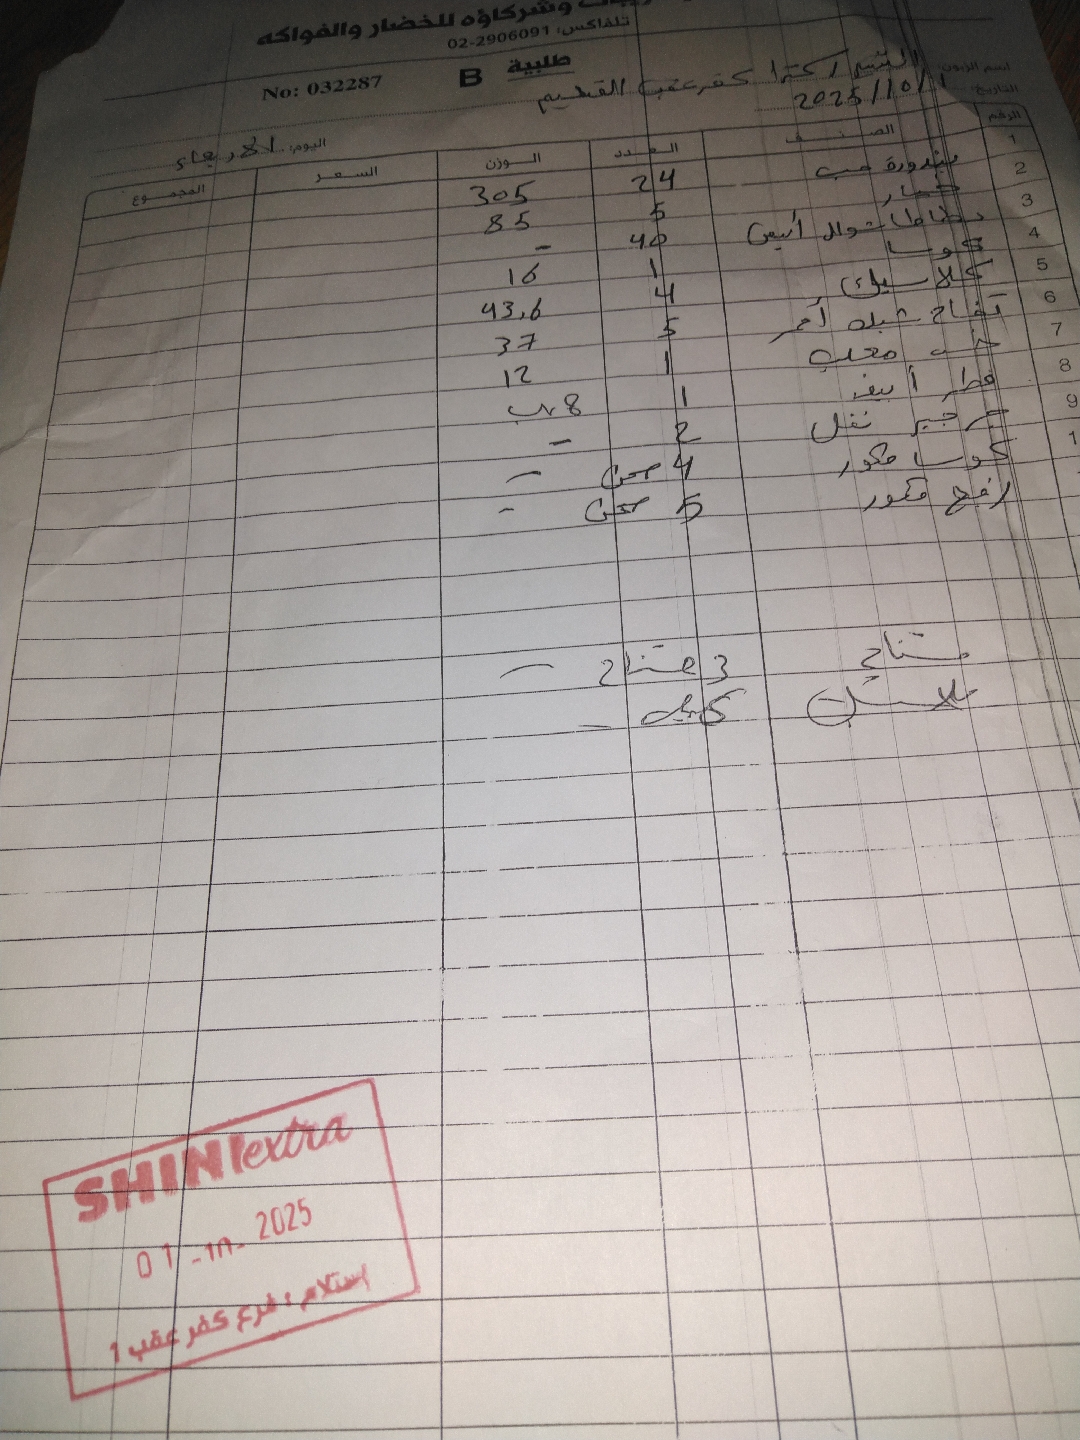 وشركاؤه للخضار والفواكه
تلفاكس: 02-2906091
طلبية B No: 032287
اسم الزبون: الشيني اكسترا كفر عقب القديم
التاريخ: 2025/10/1
اليوم: الاربعاء
الرقم الصنف العدد الوزن السعر المجموع
1 بندورة حب 24 305
2 خيار 5 85
3 بطاطا شوال أبيض 40 -
4 كوسا 1 16
5 كلاسيك 4 43,6
6 تفاح شبله أحمر 5 37
7 خس معلب 1 12
8 فطر أبيض 1 8 ب
9 جرجير نفل 2 -
1 كوسا محور 4 صحن -
محور 5 صحن -
3 -
-
SHINI extra
01 -10- 2025
استلام : فرع كفر عقب 1